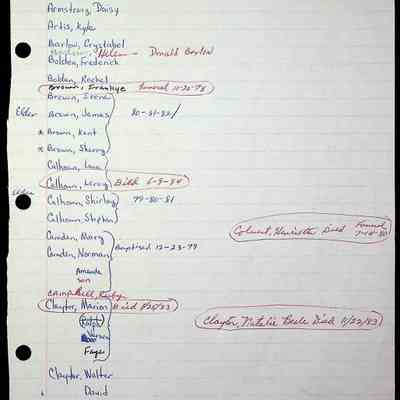 Armstrong, Daisy
Artis, Kyle
Barlow, Crystabel
Helen - Donald Barlow
Bolden, Frederick
Bolden, Rachel
Brown, Frankye Funeral 10-20-78
Brown, Irene
Elder Brown, James 80-81-82/
* Brown, Kent
* Brown, Sherry
Calhoun, Lena
Calhoun, Leroy Died 6-9-84
Elder Calhoun, Shirley 79-80-81
Calhoun, Stephen
Camden, Mary
Camden, Norman Baptised 12-23-79
Colwert, Henrietta Died Funeral
Amanda
son
Campbell, Ruby
Claytor, Marion Died 8/20/83
Claytor, Natalie Beale Died 11/22/83
Ralph
Faye
Claytor, Walter
David